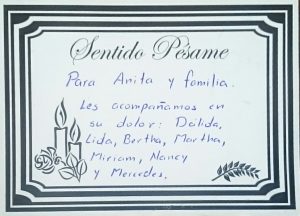 Sentido Pésame
Para Anita y familia.
Les acompañamos en
su dolor: Dalida,
Lida, Bertha, Martha,
Miriam, Nancy
y Mercedes.